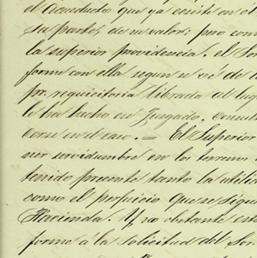 el Acueducto que ya existe en
su parte, de su valor; pero como
la superior providencia. el Sor
forme con ella segun se vé de
por requisitoria librada al
le ha hecho en Juzgado.
en el caso. — El Superior
nor servidumbre en los terrenos
tenido presente tanto la utili
como el perjuicio que se sigue
Hacienda. Y no obstante est
forme á la solicitud del Sor